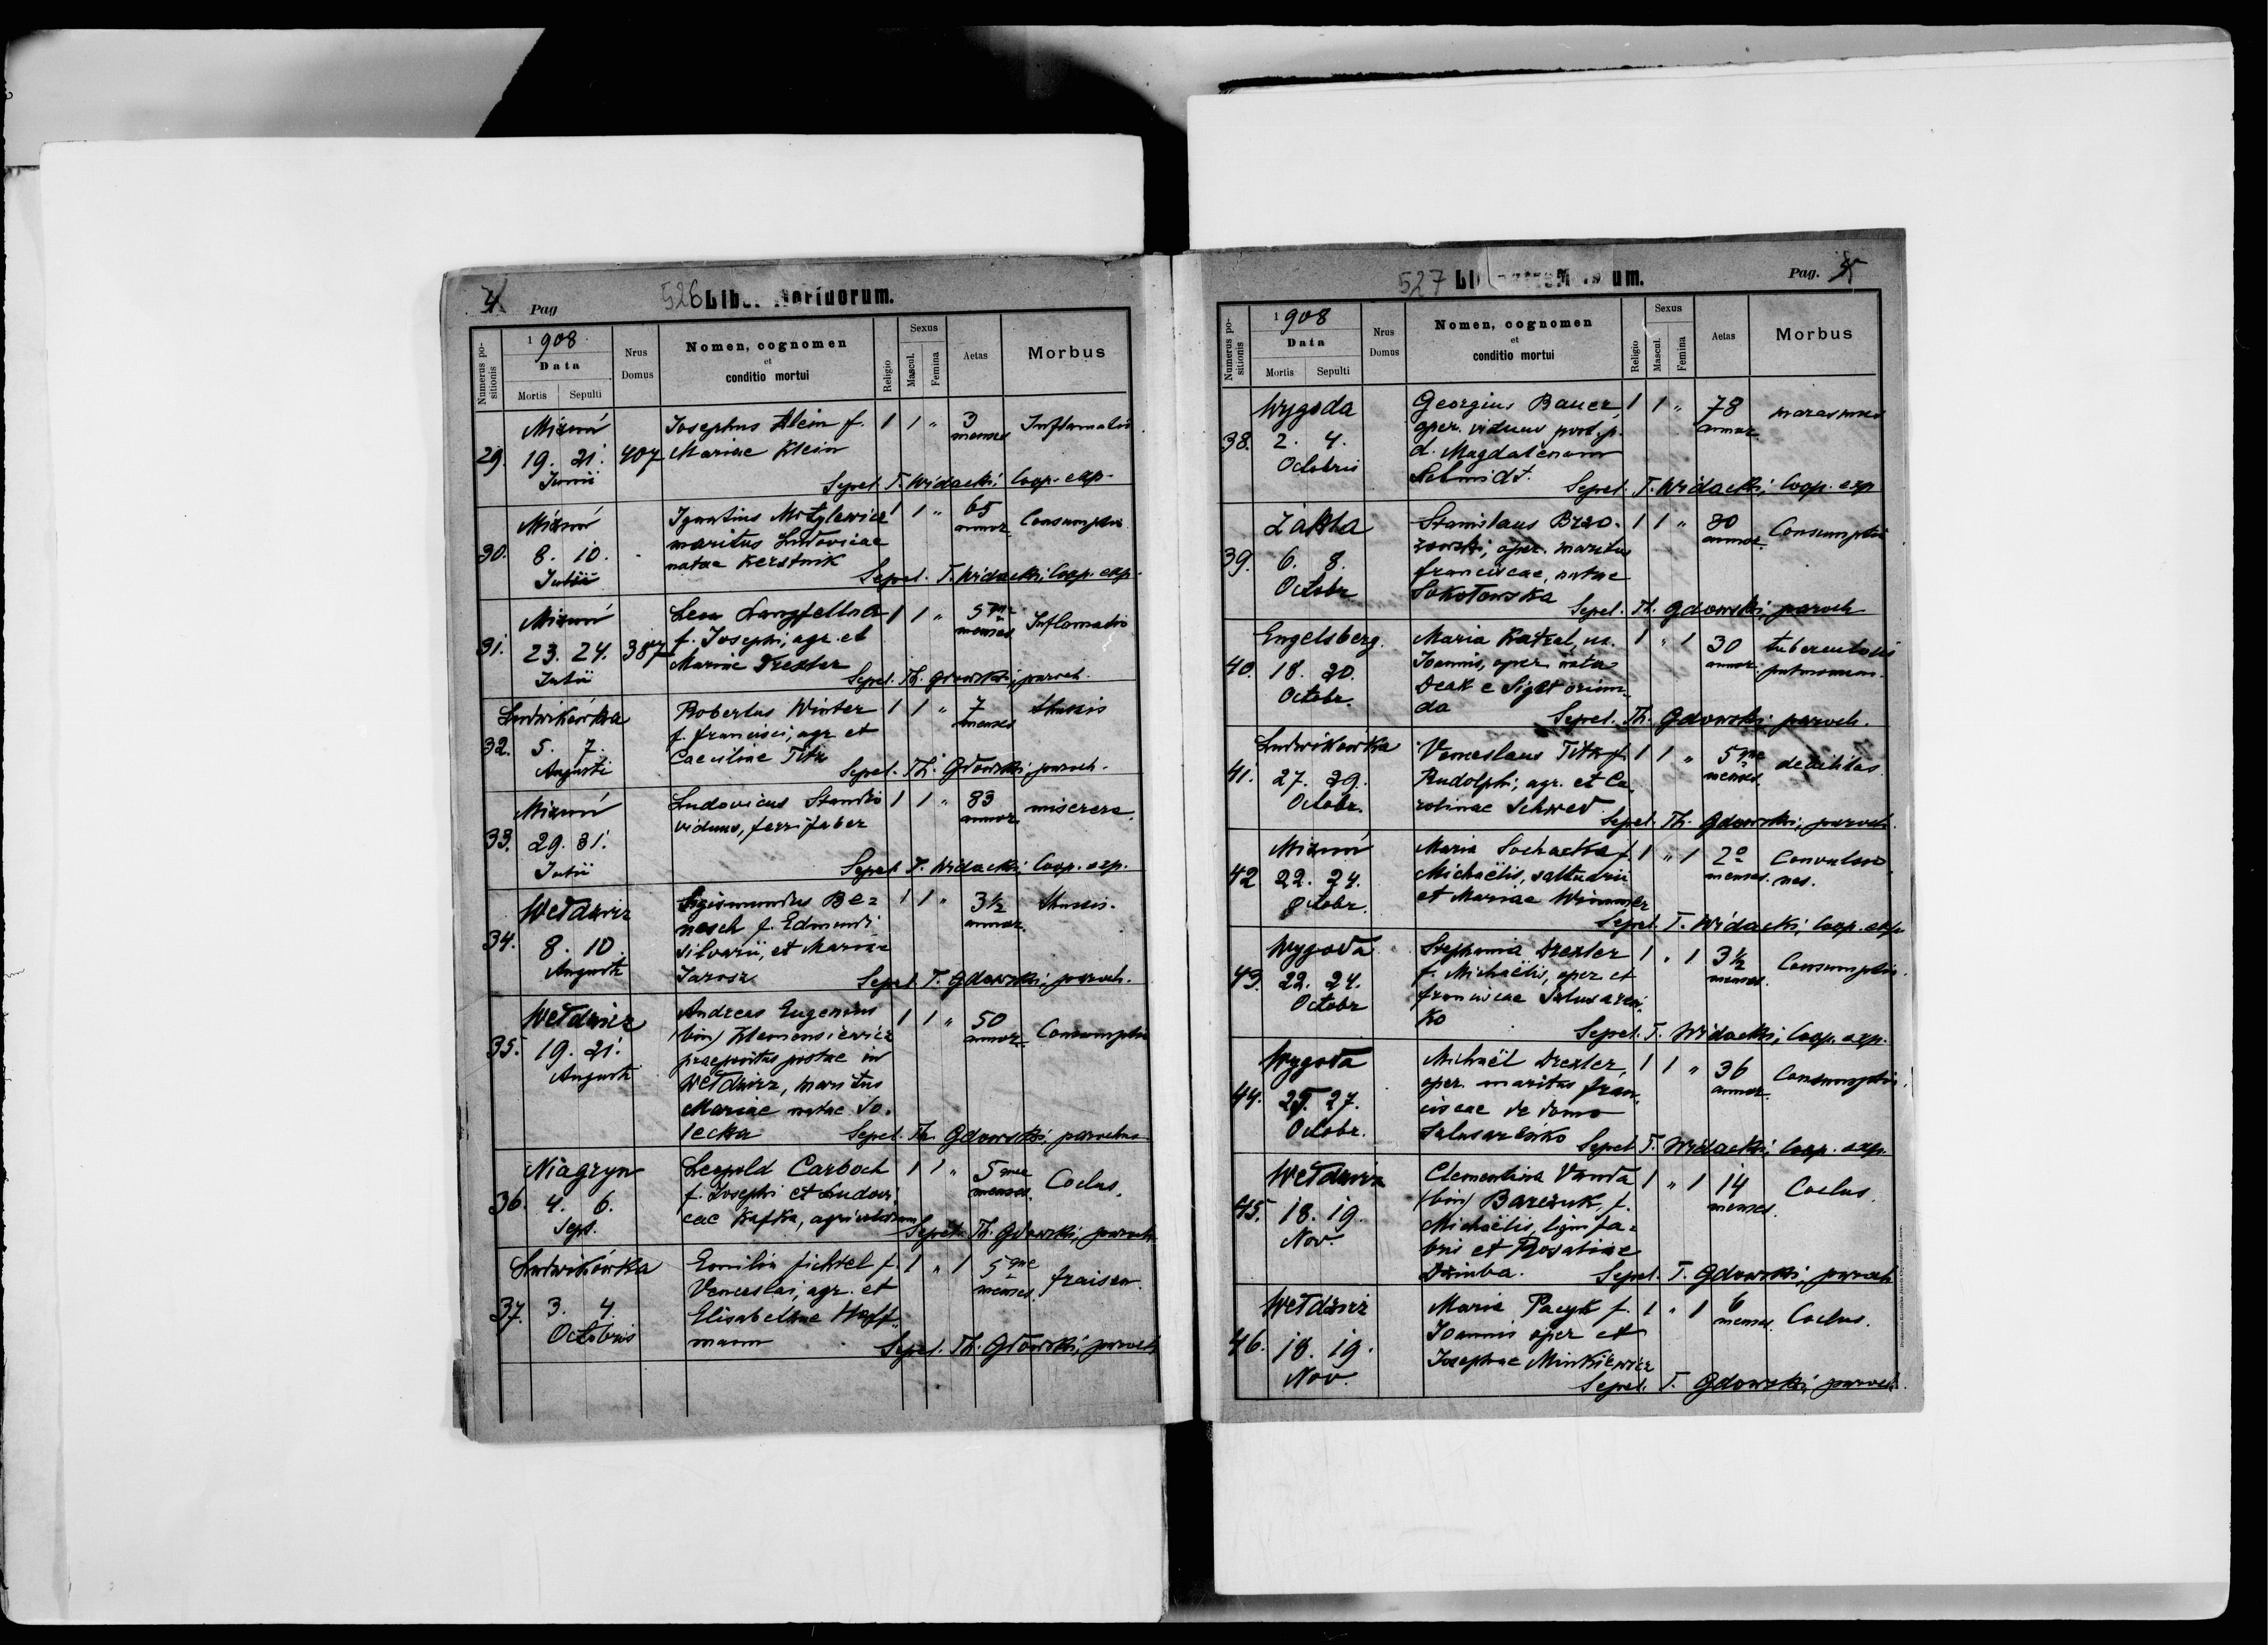 4 Pag 526 Liber Mortuorum.
Numerus positionis
1908
Data
Mortis Sepulti
Nrus Domus
Nomen, cognomen
et
conditio mortui
Religio
Sexus
Mascul. Femina
Aetas
Morbus
29. Mizuń 19. 21. Junii 407
Josephus Klein f.
Mariae Klein
1 1 " 3 menses Inflamatio
Sepel. T. Widacki, Coop. exp.
30. Mizuń 8. 10. Julii
Ignatius Motylewicz
maritus Ludovicae
natae Kerstnik
1 1 " 65 annor. Consumptio
Sepel. T. Widacki, Coop. exp.
31. Mizuń 23. 24. Julii 387
Leon Langfellner
f. Josephi, agr. et
Mariae Drexler
1 1 " 5que menses Inflamatio
Sepel. Th. Gdowski, paroch.
32. Ludwikówka 5. 7. Augusti
Robertus Winter
f. Francisci, agr. et
Caeciliae Titz
1 1 " 7 menses thussis
Sepel. Th. Gdowski, paroch.
33. Mizuń 29. 31. Julii
Ludovicus Stanko
viduus, ferri faber
1 1 " 83 annor. miserere.
Sepel. T. Widacki Coop. exp.
34. Wełdzirz 8. 10. Augusti
Sigismundus Be=
nesch f. Edmundi
silvarii, et Mariae
Jarosz
1 1 " 3½ annor. thussis.
Sepel. T. Gdowski, paroch.
35. Wełdzirz 19. 21. Augusti
Andreas Eugenius
(bin) Klemensiewicz
praepositus postae in
Wełdzirz, maritus
Mariae natae So-
lecka
1 1 " 50 annor. Consumptio
Sepel. Th. Gdowski, parochus
36. Niagryn 4. 6. Sept.
Leopold Carboch
f. Josephi et Ludovi
cae Kafka, agricolarum
1 1 " 5que menses. Coclus.
Sepel. Th. Gdowski, paroch.
37. Ludwikówka 3. 4. Octobris
Emilia Fichtel f.
Venceslai, agr. et
Elisabethae Hoff=
mann
1 " 1 5que menses. fraisen.
Sepel. Th. Gdowski, paroch
527 Liber Mortuorum. Pag. 5
Numerus positionis
1908
Data
Mortis Sepulti
Nrus Domus
Nomen, cognomen
et
conditio mortui
Religio
Sexus
Mascul. Femina
Aetas
Morbus
38. Wygoda 2. 4. Octobris
Georgius Bauer,
oper. viduus post. p.
d. Magdalenam
Schmidt.
1 1 " 78 annor. marasmus
Sepel. T. Widacki, Coop. exp
39. Zakla 6. 8. Octobr
Stanislaus Brzo-
zowski, oper. maritus
Franciscae, natae
Sokołowska
1 1 " 30 annor. Consumptio
Sepel. Th. Gdowski, paroch
40. Engelsberg. 18. 20. Octobr.
Maria Katzel, ux.
Joannis, oper. nata
Deak e Siget oriun=
da
1 " 1 30 annor. tuberculosis pulmonum.
Sepel. Th. Gdowski, paroch.
41. Ludwikówka 27. 29. Octobr.
Venceslaus Titz f.
Rudolphi, agr. et Ca-
rolinae Schwed
1 1 " 5que menses. debilitas.
Sepel. Th. Gdowski, paroch.
42 Mizuń 22. 24. Octobr.
Maria Sochacka f.
Michaëlis, saltuarii
et Mariae Wimmer
1 " 1 2o menses. Convulsio nes.
Sepel. T. Widacki, Coop. exp.
43. Wygoda 22. 24. Octobr
Stephania Drexler
f. Michaëlis, oper. et
Franciscae Slusareń-
ko
1 " 1 3½ menses. Consumptio.
Sepel. T. Widacki, Coop. exp.
44. Wygoda 25. 27. Octobr.
Michaël Drexler,
oper. maritus Fran-
ciscae de domo
Slusareńko
1 1 " 36 annor. Consumptio.
Sepel. T. Widacki, Coop. exp.
45. Wełdzirz 18. 19. Nov.
Clementina Vanda
(bin) Barczuk, f.
Michaëlis, ligni fa=
bris et Rosaliae
Dziuba.
1 " 1 14 menses. Coclus
Sepel. T. Gdowski, paroch
46. Wełdzirz 18. 19. Nov.
Maria Pacyk f.
Joannis oper et
Josephae Minkiewicz
1 " 1 6 menses. Coclus.
Sepel. T. Gdowski, paroch.